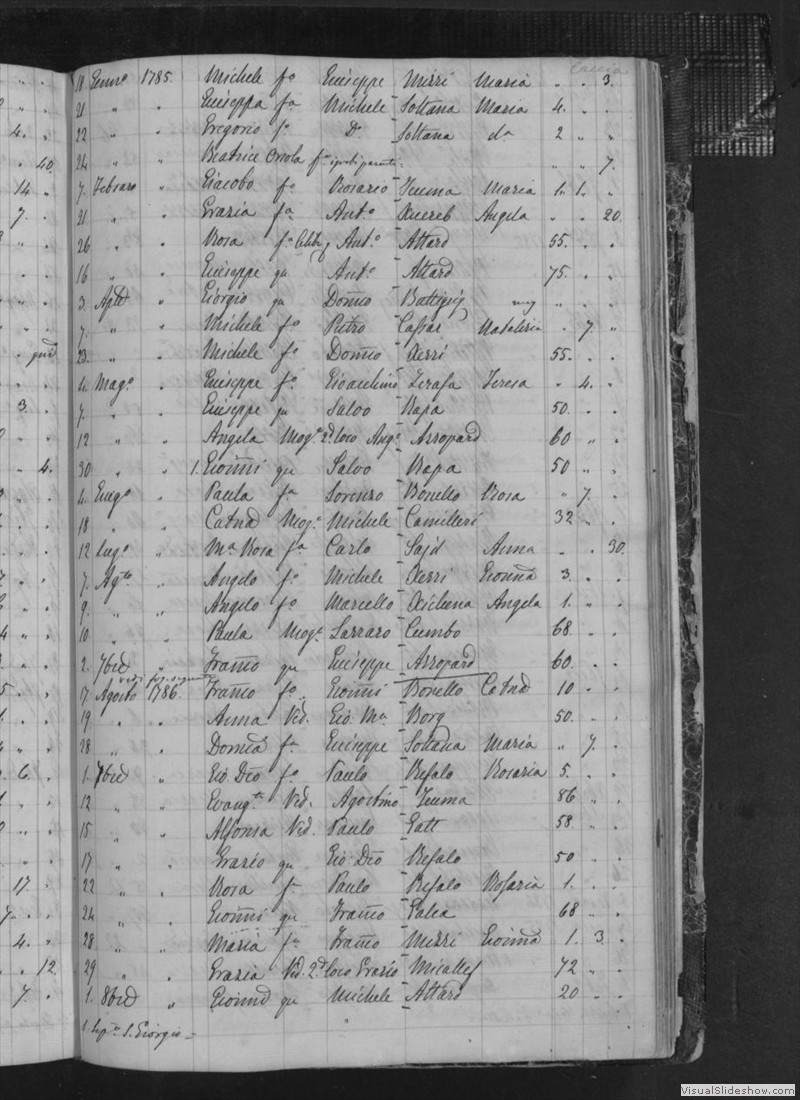 18 Genn.o 1785. Michele fo Giuseppe Mizzi Maria " . 3.
21 " " Giuseppa fa Michele Soltana Maria 4. . .
4. . 22 " " Gregorio fo Do Soltana da 2 " "
. 40. 24 " " Beatrice fa " . 7.
14. " 7. Febraro " Giacobo fo Rosario Zemma Maria 1. 1. .
7. . 21 " . Grazia fa Anto Xuereb Angela " . 20.
26 " . Rosa fa Anto Attard 55. . .
16 " . Giuseppe qu Anto Attard 75. . .
3. Aple " Giorgio qu Domco Battigieg " . .
7. " " Michele fo Pietro Cassar . 7. "
23. " " Michele fo Domco Xerri 55. . .
4. Mago . Giuseppe fo Gioachino Zerafa Teresa " 4. .
3. . 7. " . Giuseppe qu Salvo Rapa 50. . .
12 " . Angela Moge 2do loco Ango Azzopard 60 " .
. 4. 30 " . 1. Gionni qu Salvo Rapa 50 " .
4. Giugo . Paula fa Lorenzo Bonello Rosa " 7. .
18 " . Catna Moge Michele Camilleri 32 " .
12 Lugo " Ma Rosa fa Carlo Sajd Anna . . 30.
7. Agto . Angelo fo Michele Xerri Gionna 3. . .
9. " " Angelo fo Marcello Xicluna Angela 1. " .
10 " " Paula Moge Lazzaro Cumbo 68. . .
2. 7bre " Franco qu Giuseppe Azzopard 60. . .
vedi pag. seguente
17 Agosto 1786. Franco fo Gionni Bonello Catna 10 . .
19 " . Anna Ved. Gio. Ma Borg 50. . .
28 " . Domca fa Giuseppe Soltana Maria " 7. .
6. . 1. 7bre " Gio. Dco fo Paulo Refalo Rosaria 5. . .
12 " " Evangta Ved. Agostino Zemma 86 " .
15 " " Alfonsa Ved. Paulo Gatt 58. " .
17 " " Grazio qu Gio. Dco Refalo 50 . .
17. . 22 " . Rosa fa Paulo Refalo Rosaria 1. . .
24 " . Gionni qu Franco Galea 68 " .
4. . 28 " . Maria fa Franco Mizzi Gionna 1. 3. .
. 12. 29 " . Grazia Ved. 2do loco Grazio Micallef 72 " .
7. . 1. 8bre " Gionna qu Michele Attard 20 . .
S. Giorgio =
VisualSlideshow.com